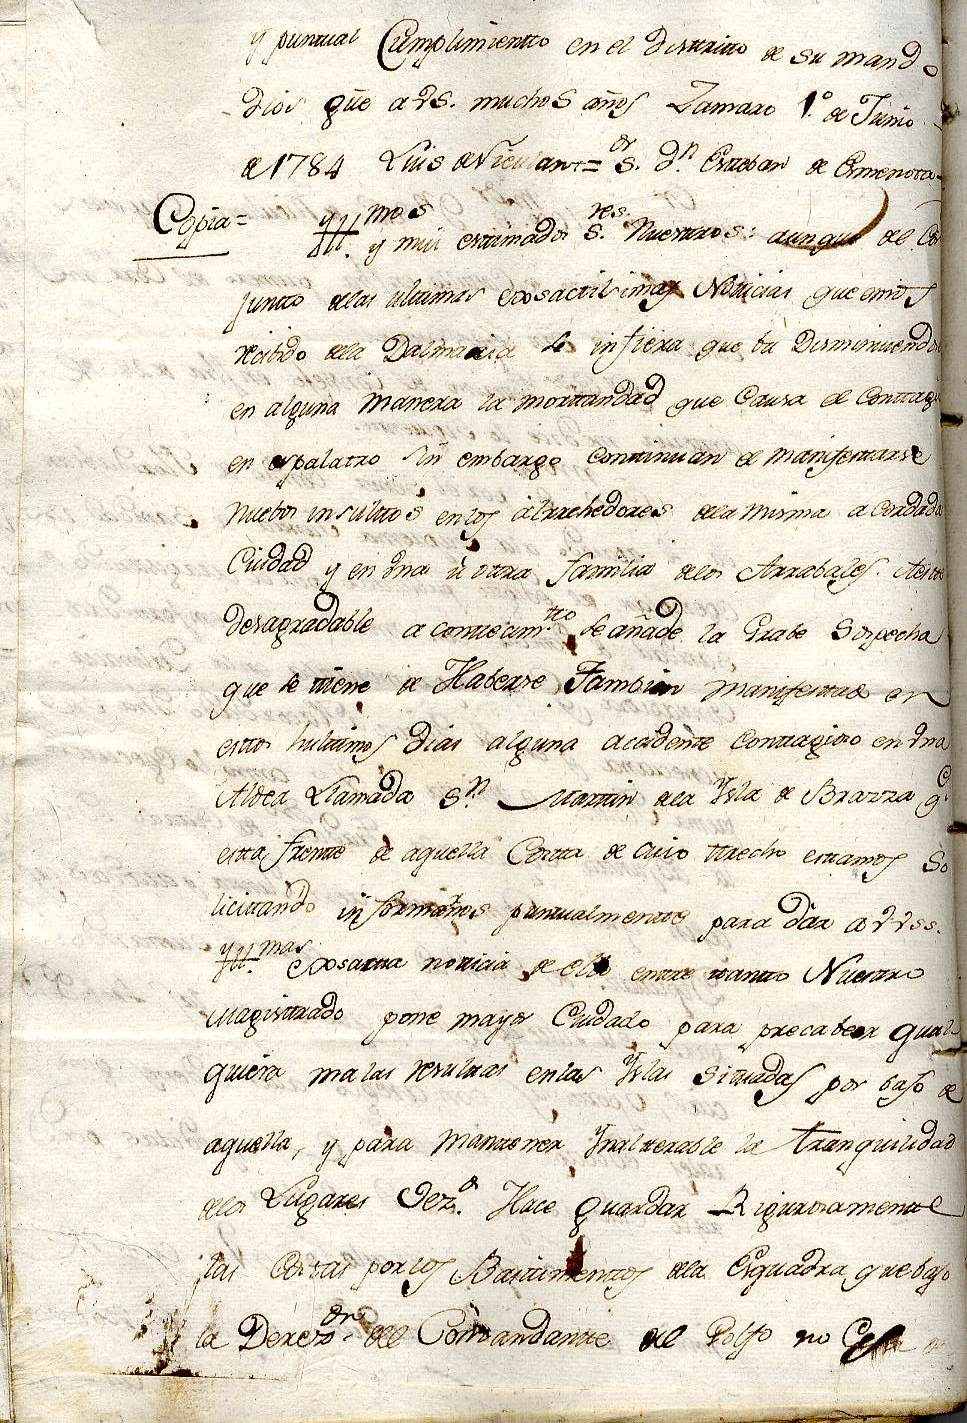 y puntual Cumplimientto en el Disttritto de su mando
Dios güe a vs. muchos años Zamaro 1.º de Junio
de 1784 Luis de = S.or Dn Esteban de
Copia = Yll.mos y mui estimados S.res Nuestros: aunque del Con
juntto delas ultimas exsactisimas Notticias que emos
recibido dela Dalmacia se infiera que ba Disminuiendo
en alguna Manera la morttandad que Causa el Conttagio
en espalatro sin embargo Conttinuan de Manifesttarse
Nuebos insulttos enlos alrrehedores dela misma acordada
Ciudad y en vna ù ottra familia delos Arrabales. Aeste
desagradable aconttecim.tto se añade la Grabe Sospecha
que se ttiene de Haberse Tambien Manifesttado en
esttos hulttimos Dias alguna acadentte Conttagioso en vna
Aldea Llamada Sn Marttin dela Ysla de Brazza q.e
estta frentte de aquella Costta de Cuio ttrecho esttamos So
licittando informarnos punttualmentte para dar a VVss.
Yll.mas exsactta notticia de ello enttre ttantto Nuesttro
Magisttrado pone mayor Cuidado para precabeer qual
quiera malas resulttas enlas Yslas Sittuadas por bajo de
aquella, y para Manttener Ynaltterable la tranquilidad
delos Lugares Hace guardar Rigurosamentte
las Costtas por los Basttimenttos dela Esquadra que bajo
la Derez.on del Comandantte del Golfo no